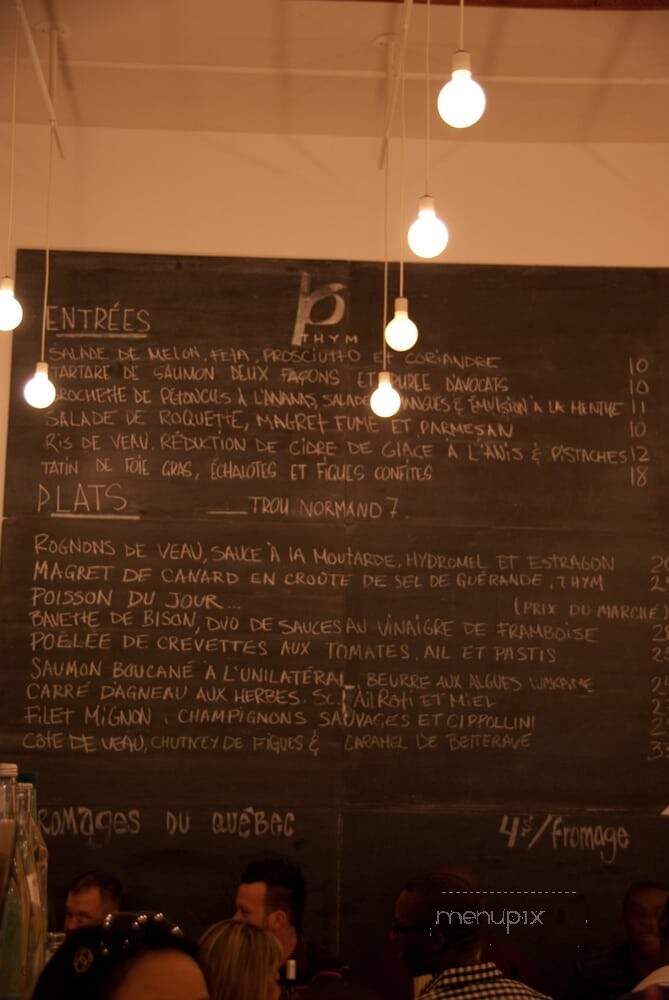 ENTRÉES
P
THYM
SALADE DE MELON, FETA, PROSCIUTTO ET CORIANDRE 10
TARTARE DE SAUMON DEUX FAÇONS ET PURÉE D'AVOCATS 10
BROCHETTE DE PÉTONCLES À L'ANANAS, SALADE MANGUES & ÉMULSION À LA MENTHE 11
SALADE DE ROQUETTE, MAGRET FUMÉ ET PARMESAN 10
RIS DE VEAU, RÉDUCTION DE CIDRE DE GLACE À L'ANIS & PISTACHES 12
TATIN DE FOIE GRAS, ÉCHALOTES ET FIGUES CONFITES 18
PLATS TROU NORMAND 7.
ROGNONS DE VEAU, SAUCE À LA MOUTARDE, HYDROMEL ET ESTRAGON
MAGRET DE CANARD EN CROÛTE DE SEL DE GUÉRANDE, THYM
POISSON DU JOUR... (PRIX DU MARCHÉ)
BAVETTE DE BISON, DUO DE SAUCES AU VINAIGRE DE FRAMBOISE
POÊLÉE DE CREVETTES AUX TOMATES, AIL ET PASTIS
SAUMON BOUCANÉ À L'UNILATÉRAL BEURRE AUX ALGUES WAKAME
CARRÉ D'AGNEAU AUX HERBES. AIL RÔTI ET MIEL
FILET MIGNON, CHAMPIGNONS SAUVAGES ET CIPPOLLINI
CÔTE DE VEAU, CHUTNEY DE FIGUES & CARAMEL DE BETTERAVE
ROMAGES DU QUÉBEC 4$/FROMAGE
menupix